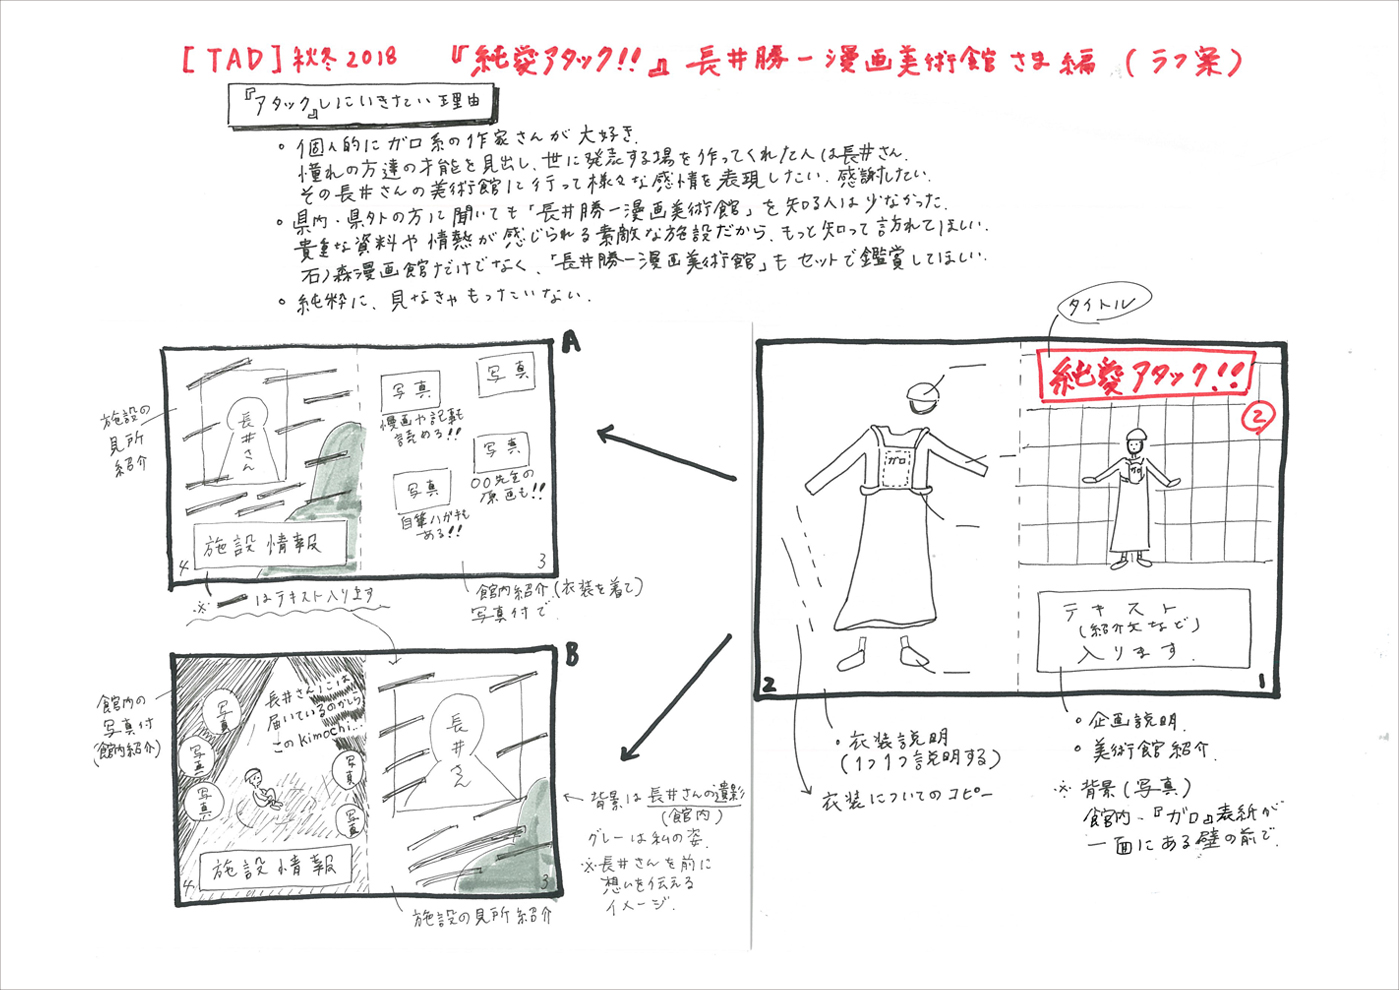 [TAD]秋冬2018 『純愛アタック!!』長井勝一漫画美術館さま編(ラフ案)
『アタック』しにいきたい理由
・個人的にガロ系の作家さんが大好き.
憧れの方達の才能を見出し、世に発表する場を作ってくれた人は長井さん.
その長井さんの美術館に行って様々な感情を表現したい.感謝したい.
・県内・県外の方に聞いても「長井勝一漫画美術館」を知る人は少なかった.
貴重な資料や情熱が感じられる素敵な施設だから、もっと知って訪れてほしい.
石ノ森漫画館だけでなく、「長井勝一漫画美術館」もセットで鑑賞してほしい.
・純粋に、見なきゃもったいない.
タイトル
純愛アタック!!
②
ガロ
ガロ
テキスト
(紹介文など)
入ります.
2
1
・衣装説明
(1つ1つ説明する)
衣装についてのコピー
・企画説明.
・美術館紹介.
※背景(写真)
館内、『ガロ』表紙が
一面にある壁の前で.
A
施設の
見所
紹介
長井さん
写真
写真
漫画や記事も
読める!!
写真
〇〇先生の
原画も!!
写真
自筆ハガキも
ある!!
施設情報
4
3
※ はテキスト入ります
館内紹介(衣装を着て)
写真付で.
B
館内の
写真付
(館内紹介)
長井さんには
届いているのかしら
このkimochi...
写真
写真
写真
写真
写真
長井さん
施設情報
4
3
施設の見所紹介
背景は長井さんの遺影
(館内)
グレーは私の姿.
※長井さんを前に
想いを伝える
イメージ.